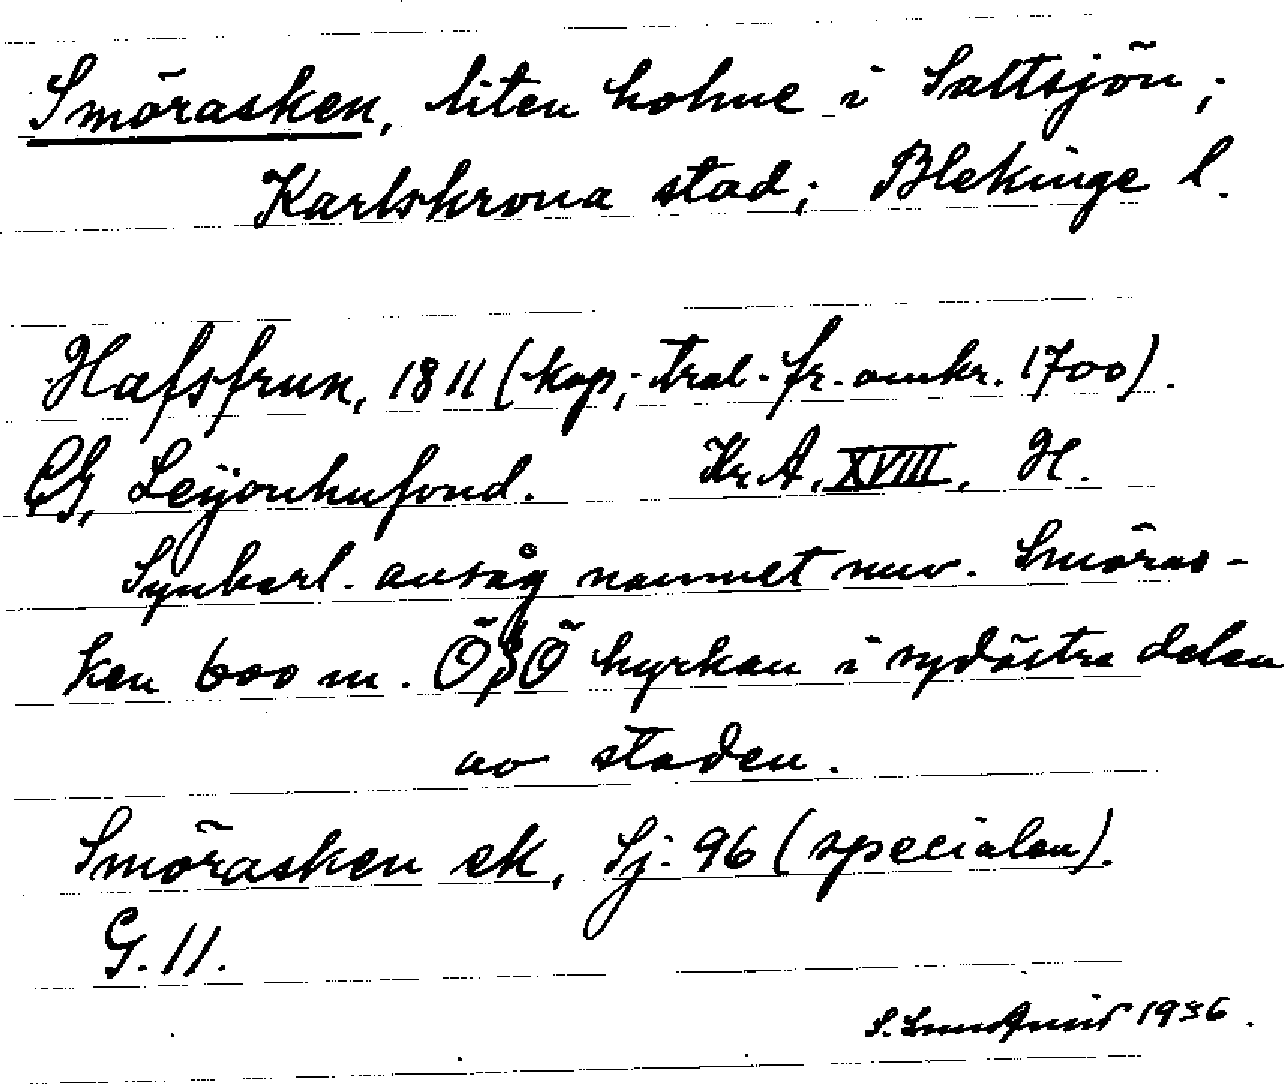 Smörasken, liten holme i Saltsjön;
Karlskrona stad; Blekinge l.
Hafsfrun, 1811 (kop; tral. fr. omkr. 1700).
CG, Leijonhufvud. Kr. A. XVIII, H.
Synbarl. avsåg namnet nuv. Smöras-
ken 600 m. ÖSÖ kyrkan i sydöstra delen
av staden.
Smörasken ek, Sj. 96 (specialen).
G. 11.
1936.